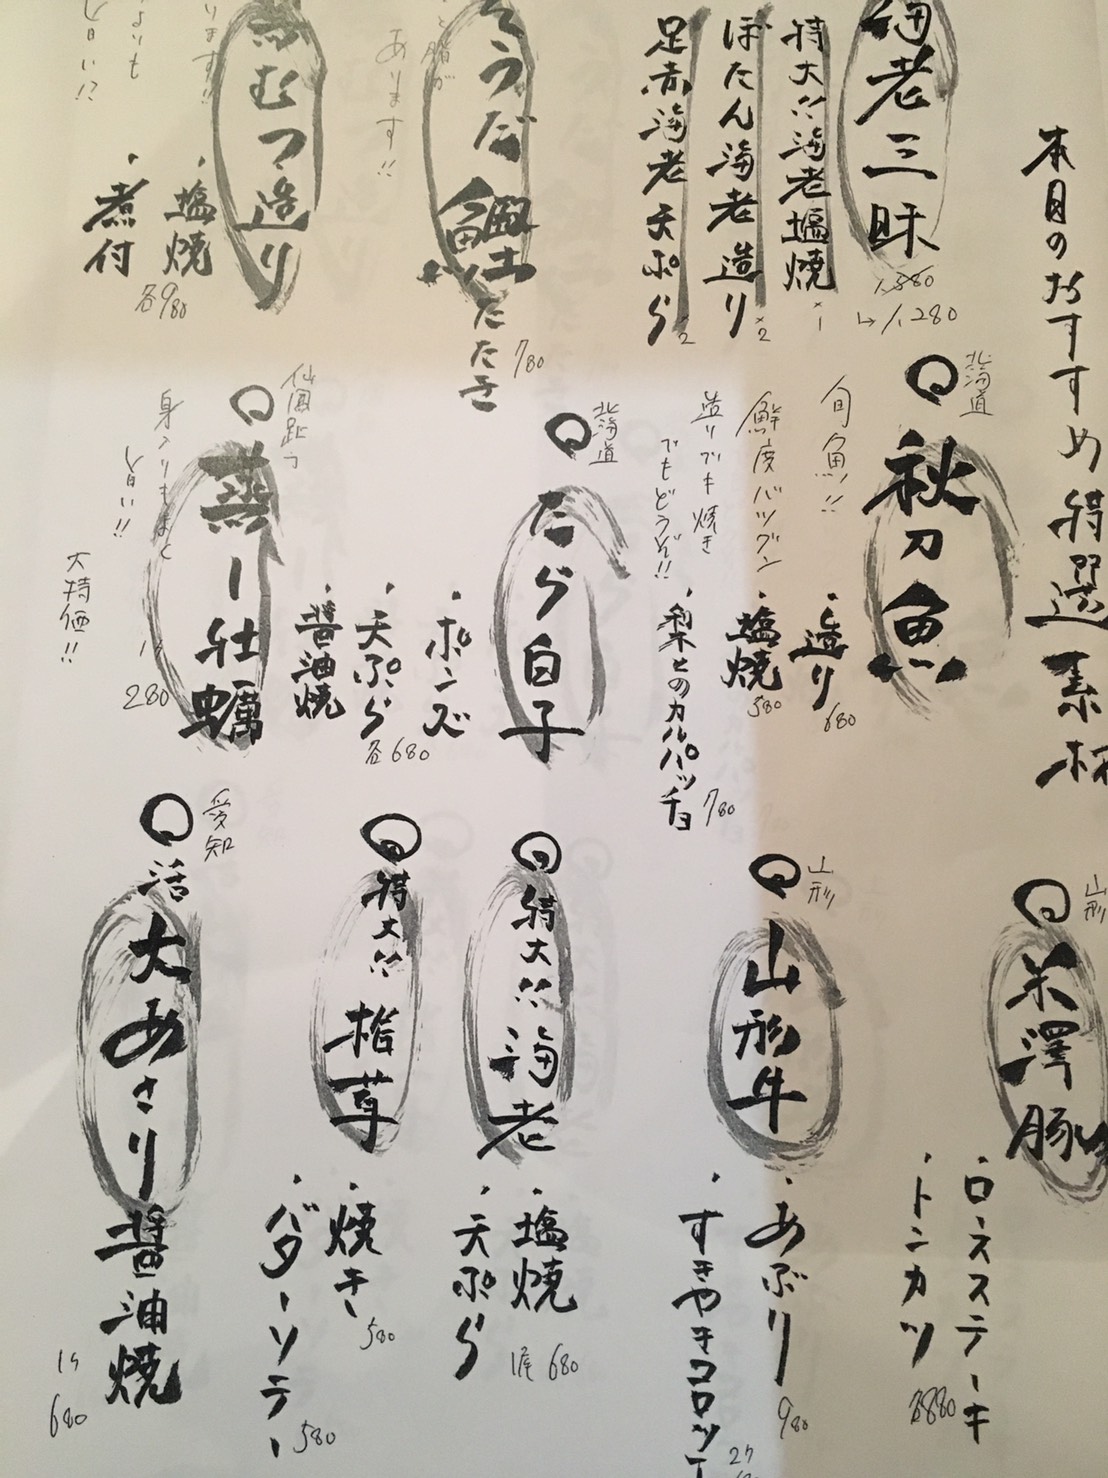 本日のおすすめ特選素材
海老三昧
1,380
↳1,280
特大!!海老塩焼 ×1
ぼたん海老造り ×2
足赤海老天ぷら 2
そうだ鰹たたき
780
あります!!
むつ造り
・塩焼
・煮付
各980
北海道
秋刀魚
旬魚!!
鮮度バツグン
造りでも焼き
でもどうぞ!!
・造り
680
・塩焼
580
・梨とのカルパッチョ
780
北海道
たら白子
・ポンズ
・天ぷら
・醤油焼
各680
仙鳳趾
蒸し牡蠣
身入りもよく
旨い!!
大特価!!
280
山形
米澤豚
・ロースステーキ
・トンカツ
各880
山形
山形牛
・あぶり
980
・すきやきコロッケ
特大!!海老
・塩焼
・天ぷら
1尾 680
特大!!椎茸
・焼き
580
・バターソテー
580
愛知
活大あさり醤油焼
1ケ
680